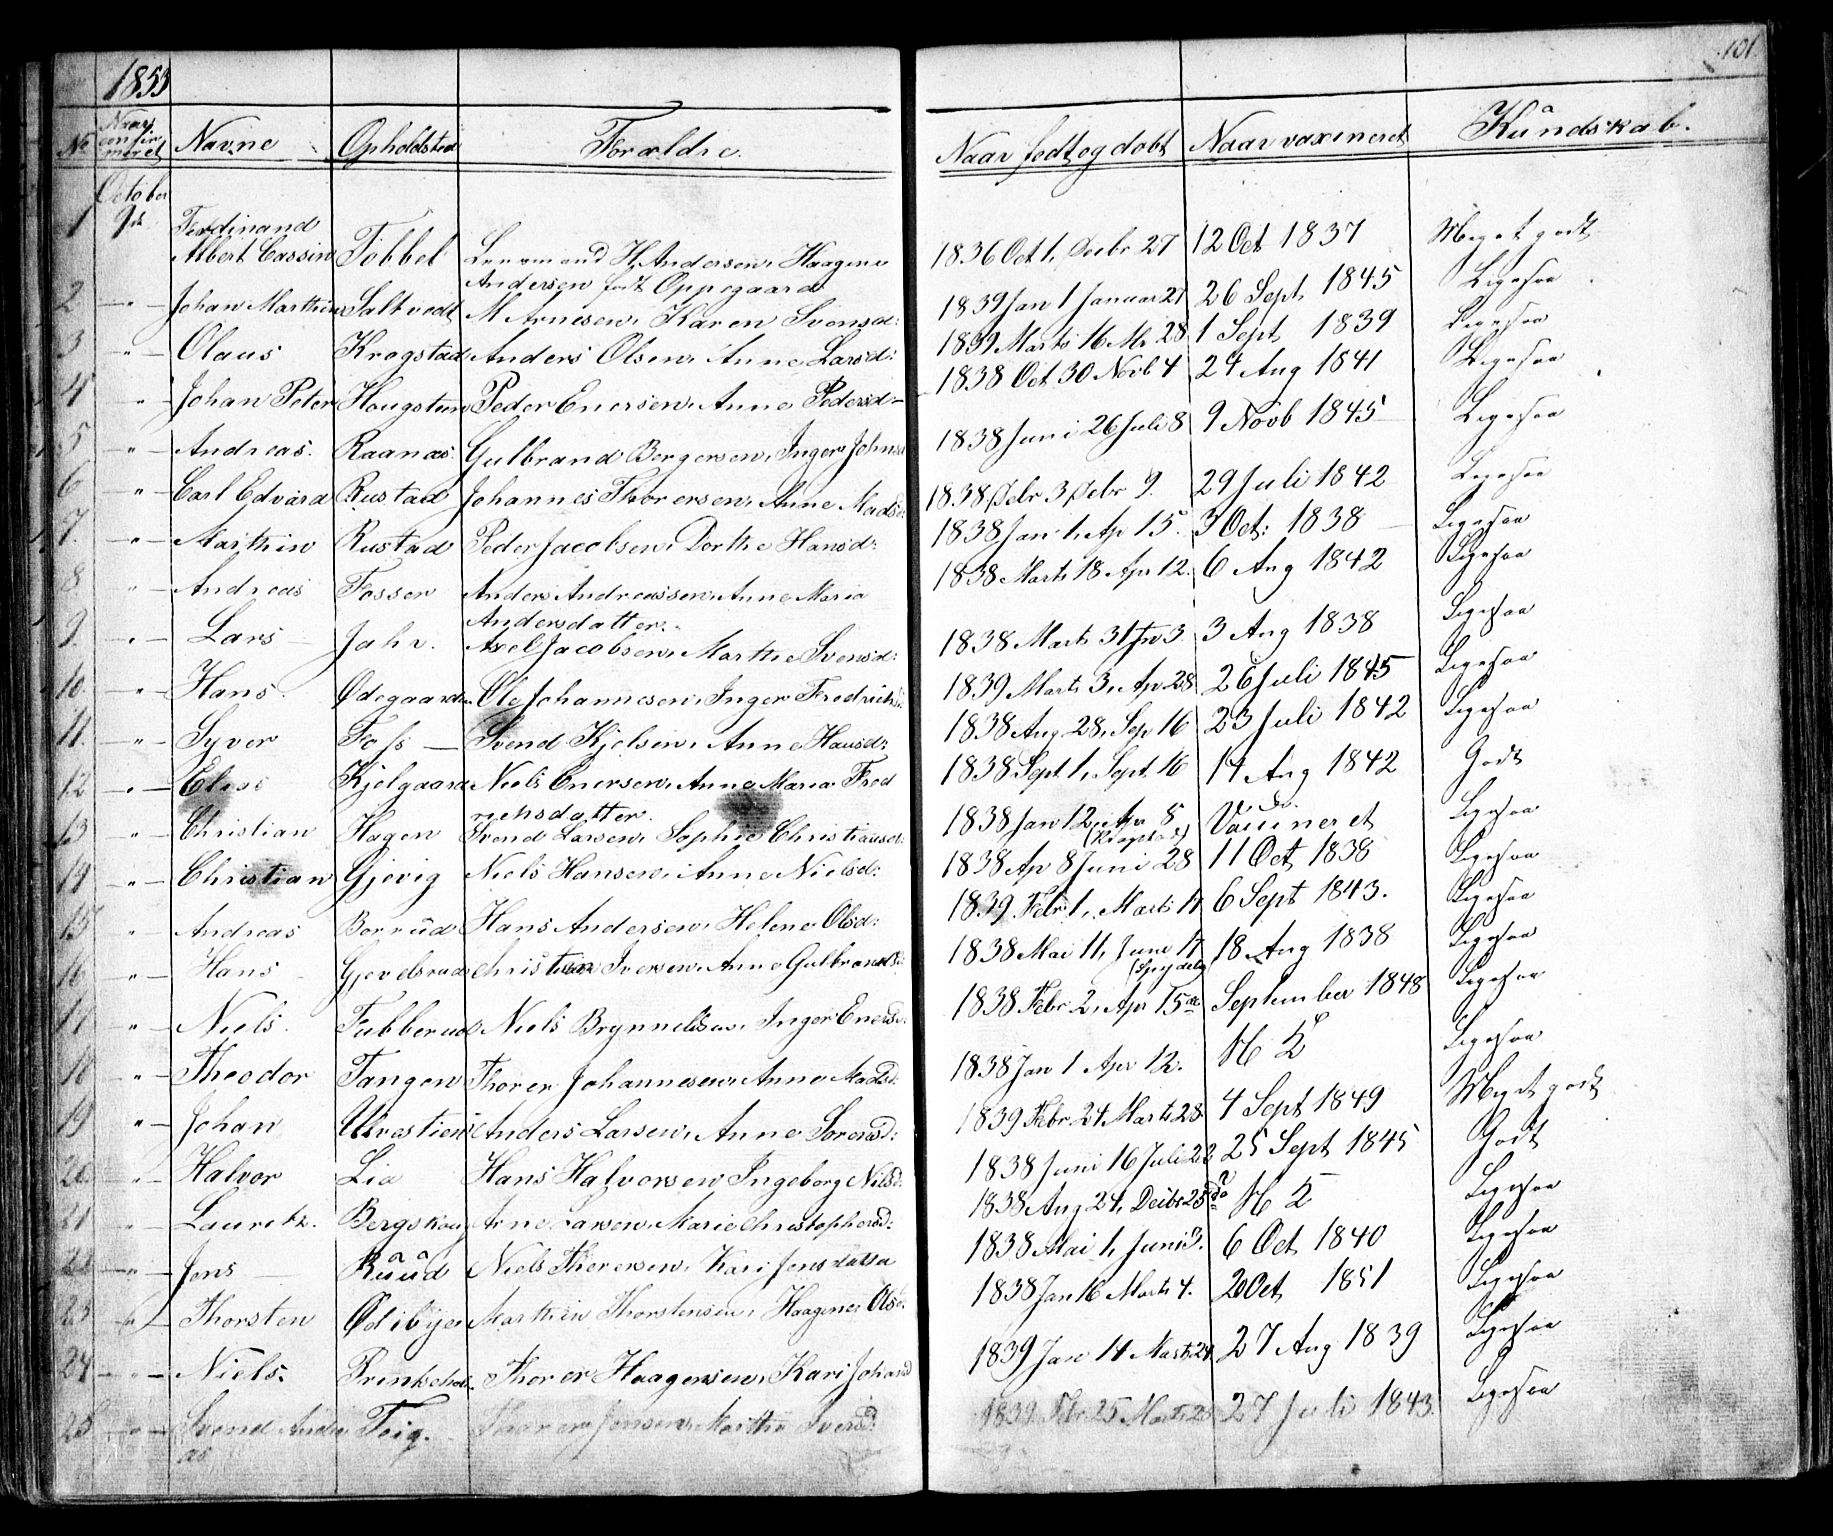 1853
101.
No Naar confirmeret Navne Opholdsted Forældre. Naar født og døbt Naar vaxineret Kundskab.
October
1 9de Ferdinand
Albert Cassin Tobbel H. Andersen, Haagine 1836 Oct 1, Decbr 27 12 Oct 1837 Meget godt
Andersen født Oppegaard
2 -"- Johan Marthin Saltvedt M Arnesen, Karen Svensd: 1839 Jan 1 Januar 27 26 Sept 1845 Ligesaa
3 "- Olaus Krogstad Anders Olsen, Anne Larsd: 1839 Marts 16 Mr 28 1 Sept 1839 Ligesaa
4 "- Johan Peter Haugsteen Peder Enersen, Anne Pedersd- 1838 Oct 30 Novb 4 24 Aug 1841 Ligesaa
5 -"- Andreas. Raanaas Gulbrand Bergersen, Inger Johnsd 1838 Juni 26 Juli 8 9 Novb 1845 Ligesaa
6 "- Carl Edvard Rustad Johannes Thorersen, Anne Madsd: 1838, Febr 3 Febr 9. 29 Juli 1842 Ligesaa
7. "- Marthin Rustad Peder Jacobsen, Dorthe Hansd: 1838 Jan 1, Ap 15. 3 Oct: 1838 Ligesaa
8 "- Andreas Fosser Anders Andreassen, Anne Maria 1838 Marts 18 Apr 12. 6 Aug 1842 Ligesaa
Andersdatter.
9. -"- Lars Jahr. Axel Jacobsen, Marthe Svensd: 1838 Marts 31 Jn 3. 3 Aug 1838 Ligesaa
10 "- Hans. Ødegaarden Ole Johannesen, Inger Fredrichsd 1839 Marts 3, Ap 28 26 Juli 1845 Ligesaa
11. -"- Syver Foss Svend Kjelsen, Anne Hansd: 1838 Aug 28, Sep 16 23 Juli 1842 Ligesaa
12 -"- Elias Kjelgaard Niels Enersen, Anne Maria Fred 1838 Sept 1, Sept 16 14 Aug 1842 Godt
richsdatter.
13 "- Christian Hagen Svend Larsen, Sophie Christiansd: 1838 Jan 12, Apr 8 Vaccineret Ligesaa
(Krogstad)
14 -"- Christian Gjevig Niels Hansen, Anne Nielsd: 1838 Ap 8 Juni 28 11 Oct 1838 Ligesaa
15 "- Andreas Borrud Hans Andersen, Helene Olsd: 1839 Febr 1, Marts 17 6 Sept 1843. Ligesaa
16 "- Hans Gjevelsrud Christian Iversen, Anne Gulbrandsd: 1838 Mai 11, Juni 17 18 Aug 1838 Ligesaa
(Spydeberg
17 "- Niels. Fubberud Niels Brynnelsen, Inger Enersd: 1838 Febr 2, Apr 15de September 1848 Ligesaa
18 "- Theodor Tangen Thorer Johannesen, Anne Madsd: 1838 Jan 1 Apr 12. Ligesaa
19 "- Johan Anders Larsen, Anne Sørensd: 1839 Febr 24 Marts 28 4 Sept 1849 Meget godt
20. "- Halvor Lia Hans Halvorsen Ingeborg Nilsd: 1838 Juni 16 Juli 22 25 Sept 1845 Godt
21 -"- Lauritz. Bergskoug Arne Larsen, Marie Christophersd: 1838 Aug 24, Decbr 25de Ligesaa
22 -"- Jens Ruud Niels Thorersen, Kari Jensdatter 1838 Mai 1, Juni 3. 6 Oct 1840 Ligesaa
23 -"- Thorsten Ødibyer Marthin Thorstensen, Haagine Olsd: 1838 Jan 16 Marts 4. 20 Oct 1851 Ligesaa
24 -"- Niels. Thorer Haagensen, Kari Johansd 1839 Jan 14 Marts 24 27 Aug 1839 Ligesaa
25 -"- Svend Andre Teig. Thorer Jensen, Marthe Iversd: 1839 Febr 25 Marts 27 Juli 1843 Ligesaa
as